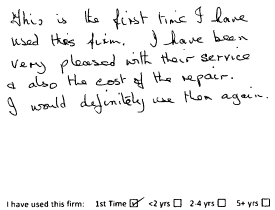 This is the first time I have
used this firm. I have been
very pleased with their service
& also the cost of the repair.
I would definitely use them again.
I have used this firm: 1st Time ☑ <2 yrs ☐ 2-4 yrs ☐ 5+ yrs ☐